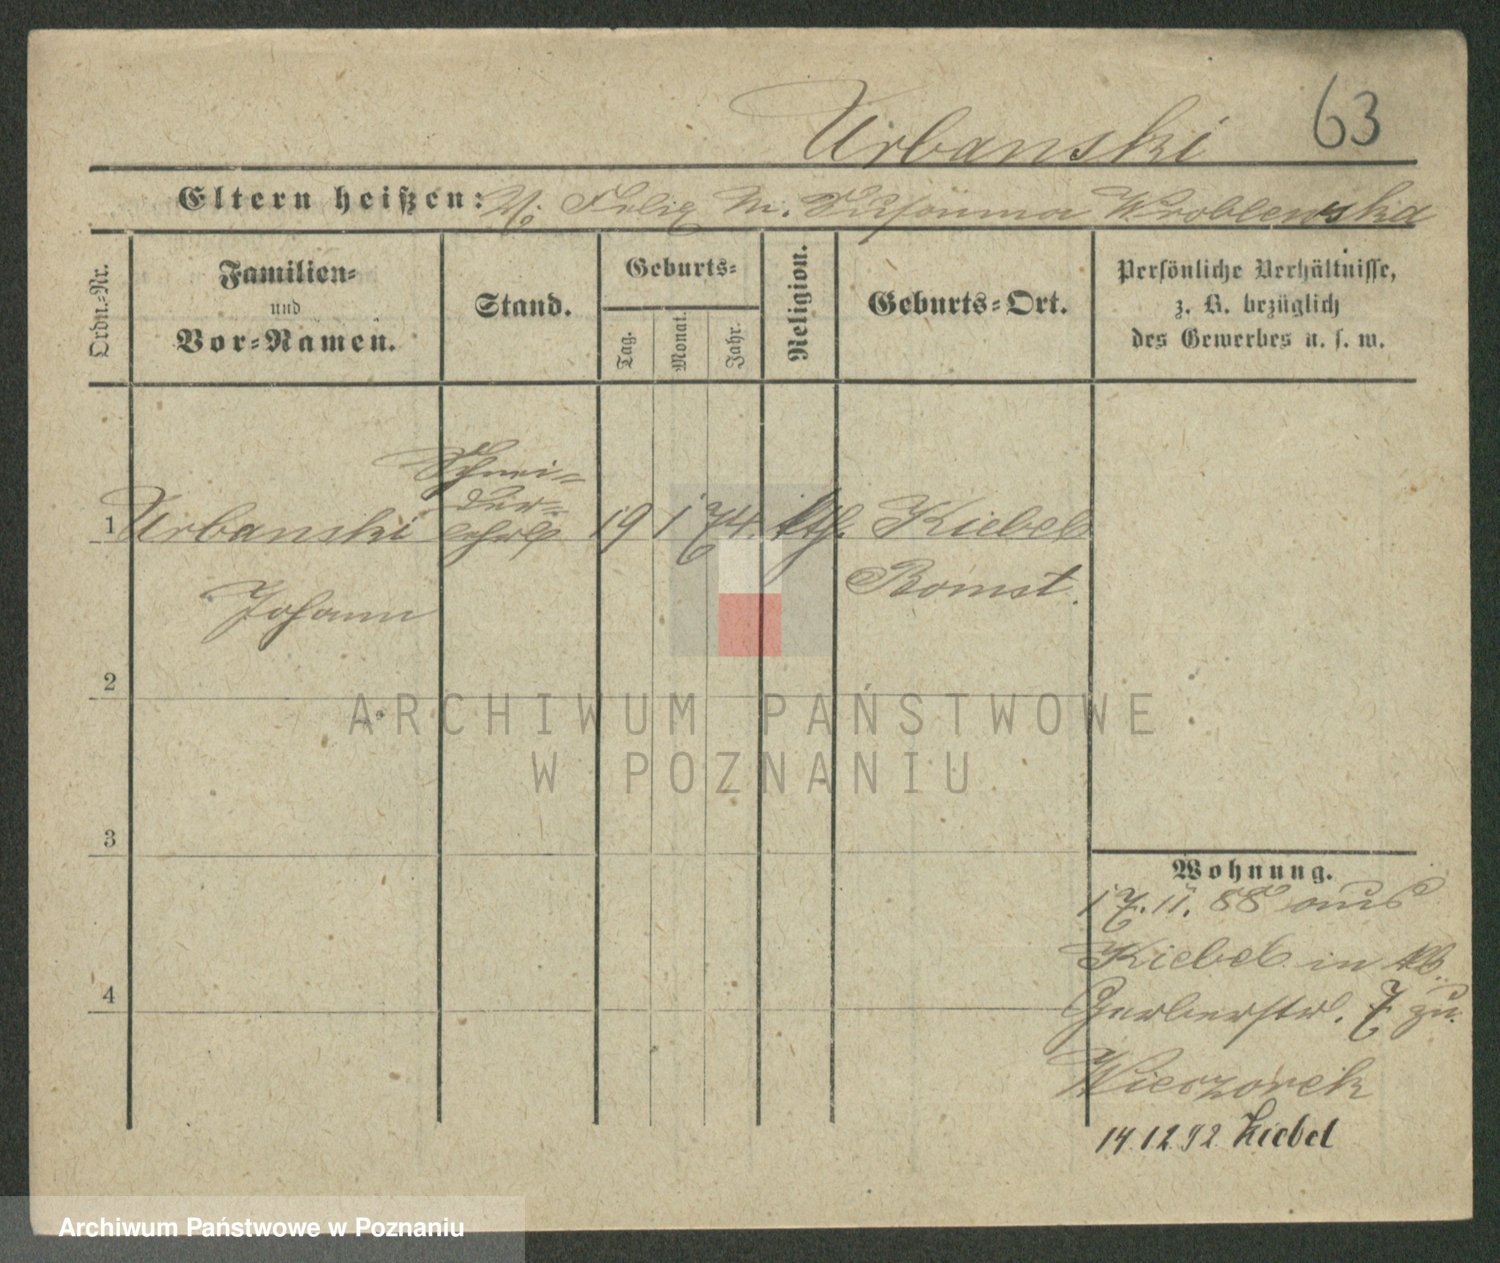 Urbanski
63
Eltern heißen: V. Felix M. Wroblewska
Ordn.-Nr.
Familien-
und
Vor-Namen.
Stand.
Geburts-
Tag.
Monat.
Jahr.
Religion.
Geburts-Ort.
Persönliche Verhältnisse,
z. B. bezüglich
des Gewerbes u. s. w.
1 Urbanski
Johann
Schnei-
der-
lehrl
19 1 74. kth. Kiebel
Bomst.
2
3
4
ARCHIWUM PAŃSTWOWE
W POZNANIU
Wohnung.
17. 11. 88 aus
Kiebel in
Gerberstr. 7 zu
Wieczorek
14.12.92 Kiebel
Archiwum Państwowe w Poznaniu